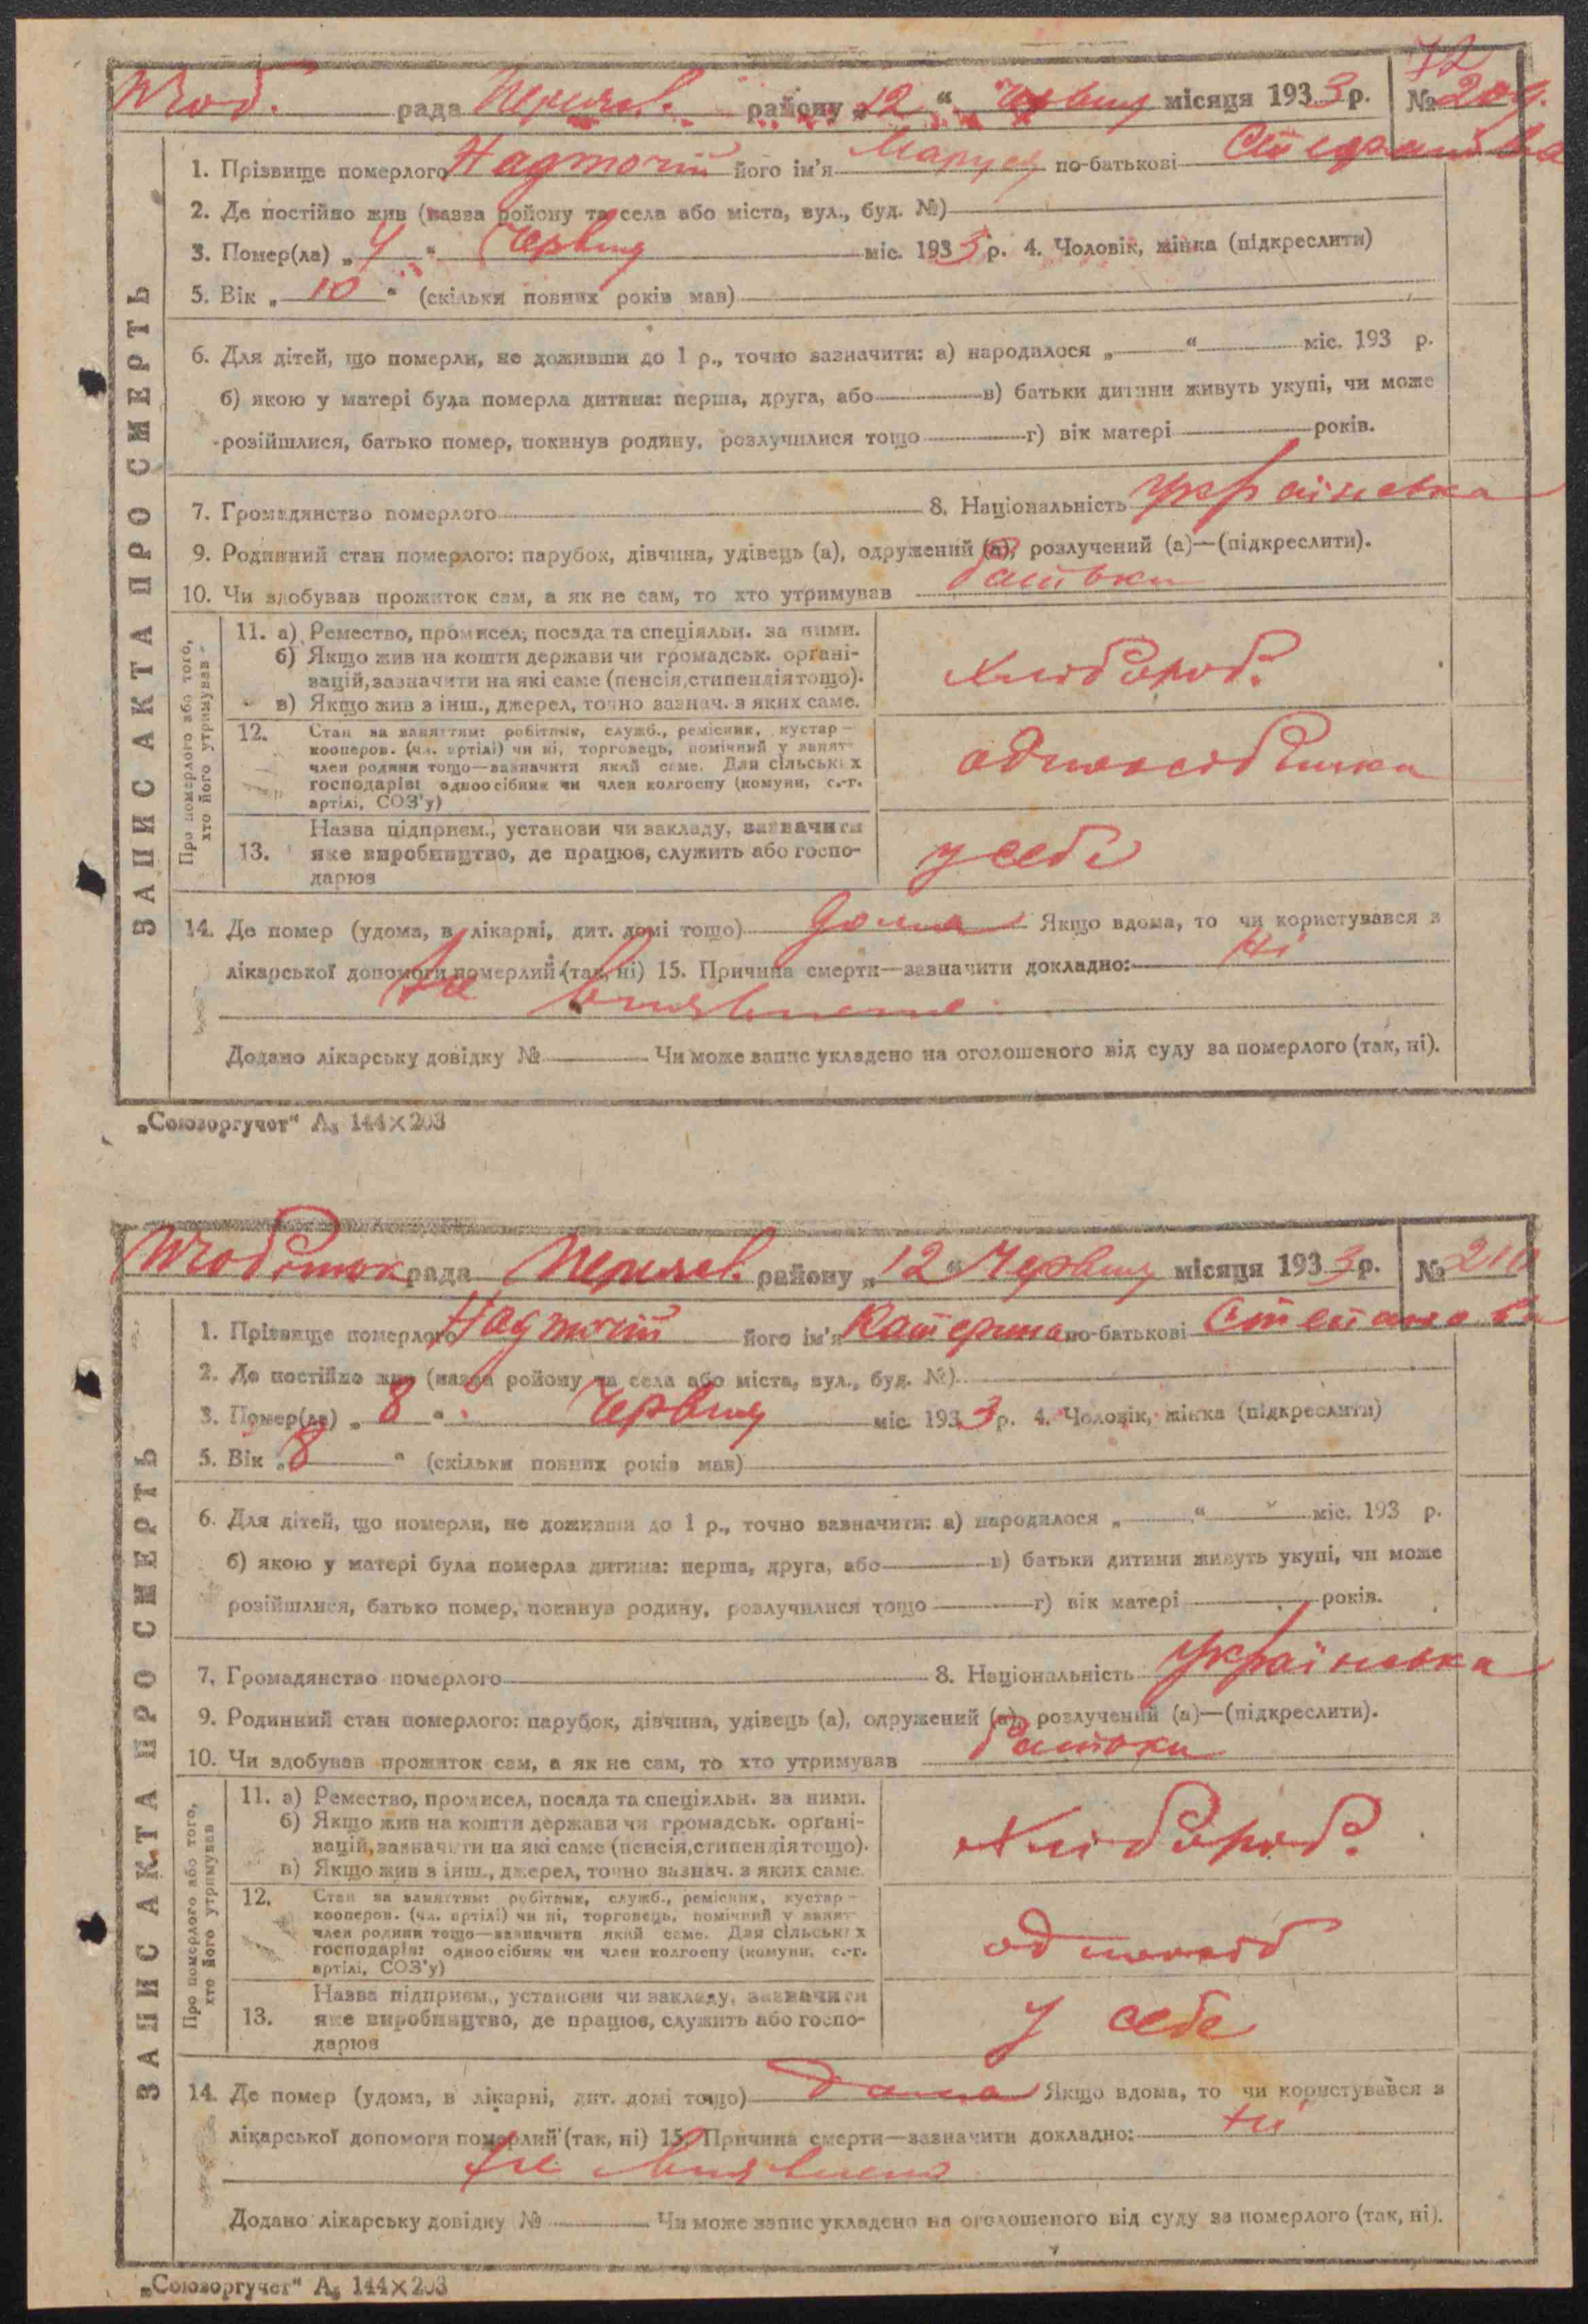 72
рада Переясл. району „12“ Червня місяця 1933 р. № 209.
ЗАПИС АКТА ПРО СМЕРТЬ
1. Прізвище померлого Надточій його ім'я Маруся по-батькові
2. Де постійно жив (назва району та села або міста, вул., буд. №)
3. Помер(ла) „4“ Червня міс. 1933 р. 4. Чоловік, жінка (підкреслити)
5. Вік „10“ (скільки повних років мав)
6. Для дітей, що померли, не доживши до 1 р., точно зазначити: а) народилося „ “ міс. 193 р.
б) якою у матері була померла дитина: перша, друга, або в) батьки дитини живуть укупі, чи може
розійшлися, батько помер, покинув родину, розлучилися тощо г) вік матері років.
7. Громадянство померлого 8. Національність українська
9. Родинний стан померлого: парубок, дівчина, удівець (а), одружений (а), розлучений (а)—(підкреслити).
10. Чи здобував прожиток сам, а як не сам, то хто утримував батьки
Про померлого або того,
хто його утримував
11. а) Ремество, промисел, посада та спеціяльн. за ними.
б) Якщо жив на кошти держави чи громадськ. орґані-
зацій, зазначити на які саме (пенсія, стипендія тощо).
в) Якщо жив з інш., джерел, точно зазнач. з яких саме.
хлібороб.
12. Стан за заняттям: робітник, служб., ремісник, кустар—
кооперов. (чл. артілі) чи ні, торговець, помічний у занят-
член родини тощо—зазначити який саме. Для сільських
господарів: одноосібник чи член колгоспу (комуни, с.-г.
артілі, СОЗ'у)
одноосібника
13. Назва підприєм., установи чи закладу, зазначити
яке виробництво, де працює, служить або госпо-
дарює
у себе
14. Де помер (удома, в лікарні, дит. домі тощо) дома Якщо вдома, то чи користувався з
лікарської допомоги померлий (так, ні) 15. Причина смерти—зазначити докладно: ні
не виявлено
Додано лікарську довідку № Чи може запис укладено на оголошеного від суду за померлого (так, ні).
„Союзоргучет“ А₅ 144×203
рада Переясл. району „12“ Червня місяця 1933 р. № 210
ЗАПИС АКТА ПРО СМЕРТЬ
1. Прізвище померлого Надточій його ім'я Катерина по-батькові Степановна
2. Де постійно жив (назва району та села або міста, вул., буд. №)
3. Помер(ла) „8“ Червня міс. 1933 р. 4. Чоловік, жінка (підкреслити)
5. Вік „8“ (скільки повних років мав)
6. Для дітей, що померли, не доживши до 1 р., точно зазначити: а) народилося „ “ міс. 193 р.
б) якою у матері була померла дитина: перша, друга, або в) батьки дитини живуть укупі, чи може
розійшлися, батько помер, покинув родину, розлучилися тощо г) вік матері років.
7. Громадянство померлого 8. Національність українська
9. Родинний стан померлого: парубок, дівчина, удівець (а), одружений (а), розлучений (а)—(підкреслити).
10. Чи здобував прожиток сам, а як не сам, то хто утримував батьки
Про померлого або того,
хто його утримував
11. а) Ремество, промисел, посада та спеціяльн. за ними.
б) Якщо жив на кошти держави чи громадськ. орґані-
зацій, зазначити на які саме (пенсія, стипендія тощо).
в) Якщо жив з інш., джерел, точно зазнач. з яких саме.
хлібороб.
12. Стан за заняттям: робітник, служб., ремісник, кустар—
кооперов. (чл. артілі) чи ні, торговець, помічний у занят-
член родини тощо—зазначити який саме. Для сільських
господарів: одноосібник чи член колгоспу (комуни, с.-г.
артілі, СОЗ'у)
одноосіб
13. Назва підприєм., установи чи закладу, зазначити
яке виробництво, де працює, служить або госпо-
дарює
у себе
14. Де помер (удома, в лікарні, дит. домі тощо) дома Якщо вдома, то чи користувався з
лікарської допомоги померлий (так, ні) 15. Причина смерти—зазначити докладно: ні
не виявлено
Додано лікарську довідку № Чи може запис укладено на оголошеного від суду за померлого (так, ні).
„Союзоргучет“ А₅ 144×203